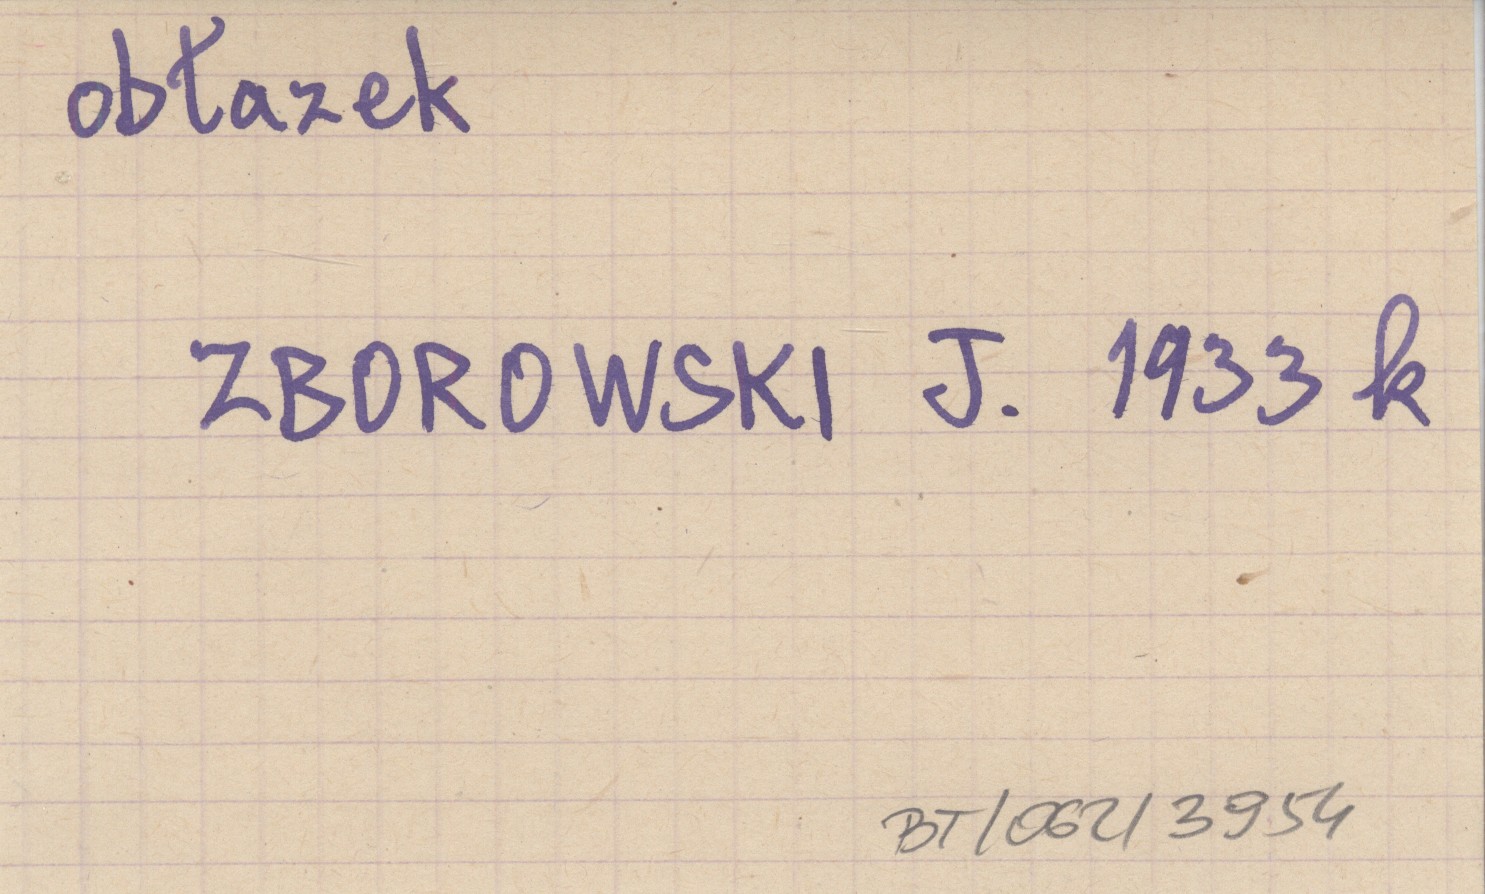 obłazek
ZBOROWSKI J. 1933 k
BT/062/3954